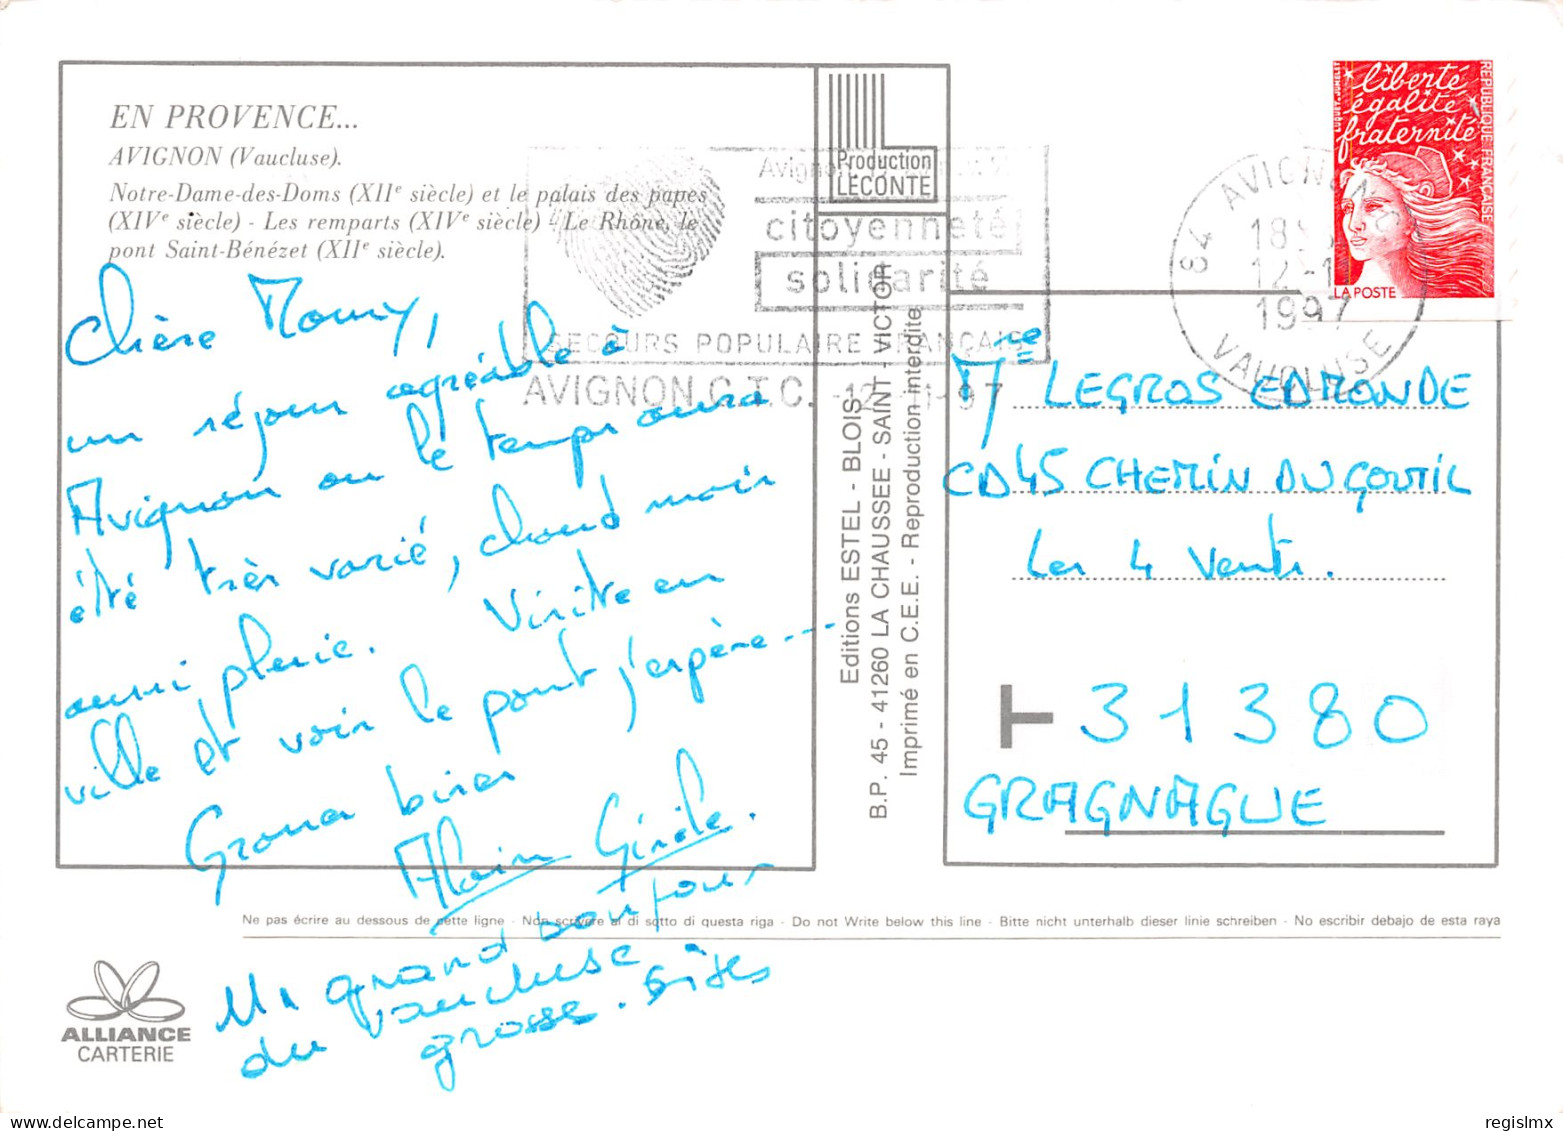 EN PROVENCE...
AVIGNON (Vaucluse).
Notre-Dame-des-Doms (XIIe siècle) et le palais des papes
(XIVe siècle) - Les remparts (XIVe siècle) - Le Rhône, le
pont Saint-Bénézet (XIIe siècle).
Chère Mamy,
un séjour agréable à
Avignon où le temps aura
été très varié, chaud mais
aussi pluie. Visite en
ville et voir le pont j'espère ---
Grosses bises
Alain Gisèle.
Un grand bonjour
du Vaucluse
grosse. Bises
Production
LECONTE
citoyenneté
solidarité
SECOURS POPULAIRE FRANÇAIS
AVIGNON C.T.C. -12-11-97
Editions ESTEL - BLOIS
B.P. 45 - 41260 LA CHAUSSEE - SAINT - VICTOR
Imprimé en C.E.E. - Reproduction interdite
liberté
égalité
fraternité
RÉPUBLIQUE FRANÇAISE
LUQUET-JUMELET
LA POSTE
84 AVIGNON
12-11
1997
VAUCLUSE
Mme LEGROS EDMONDE
CD45 CHEMIN DU GOUTIL
Les 4 Vents.
31380
GRAGNAGUE
Ne pas écrire au dessous de cette ligne - Non scrivere al di sotto di questa riga - Do not Write below this line - Bitte nicht unterhalb dieser linie schreiben - No escribir debajo de esta raya
ALLIANCE
CARTERIE
regislmx